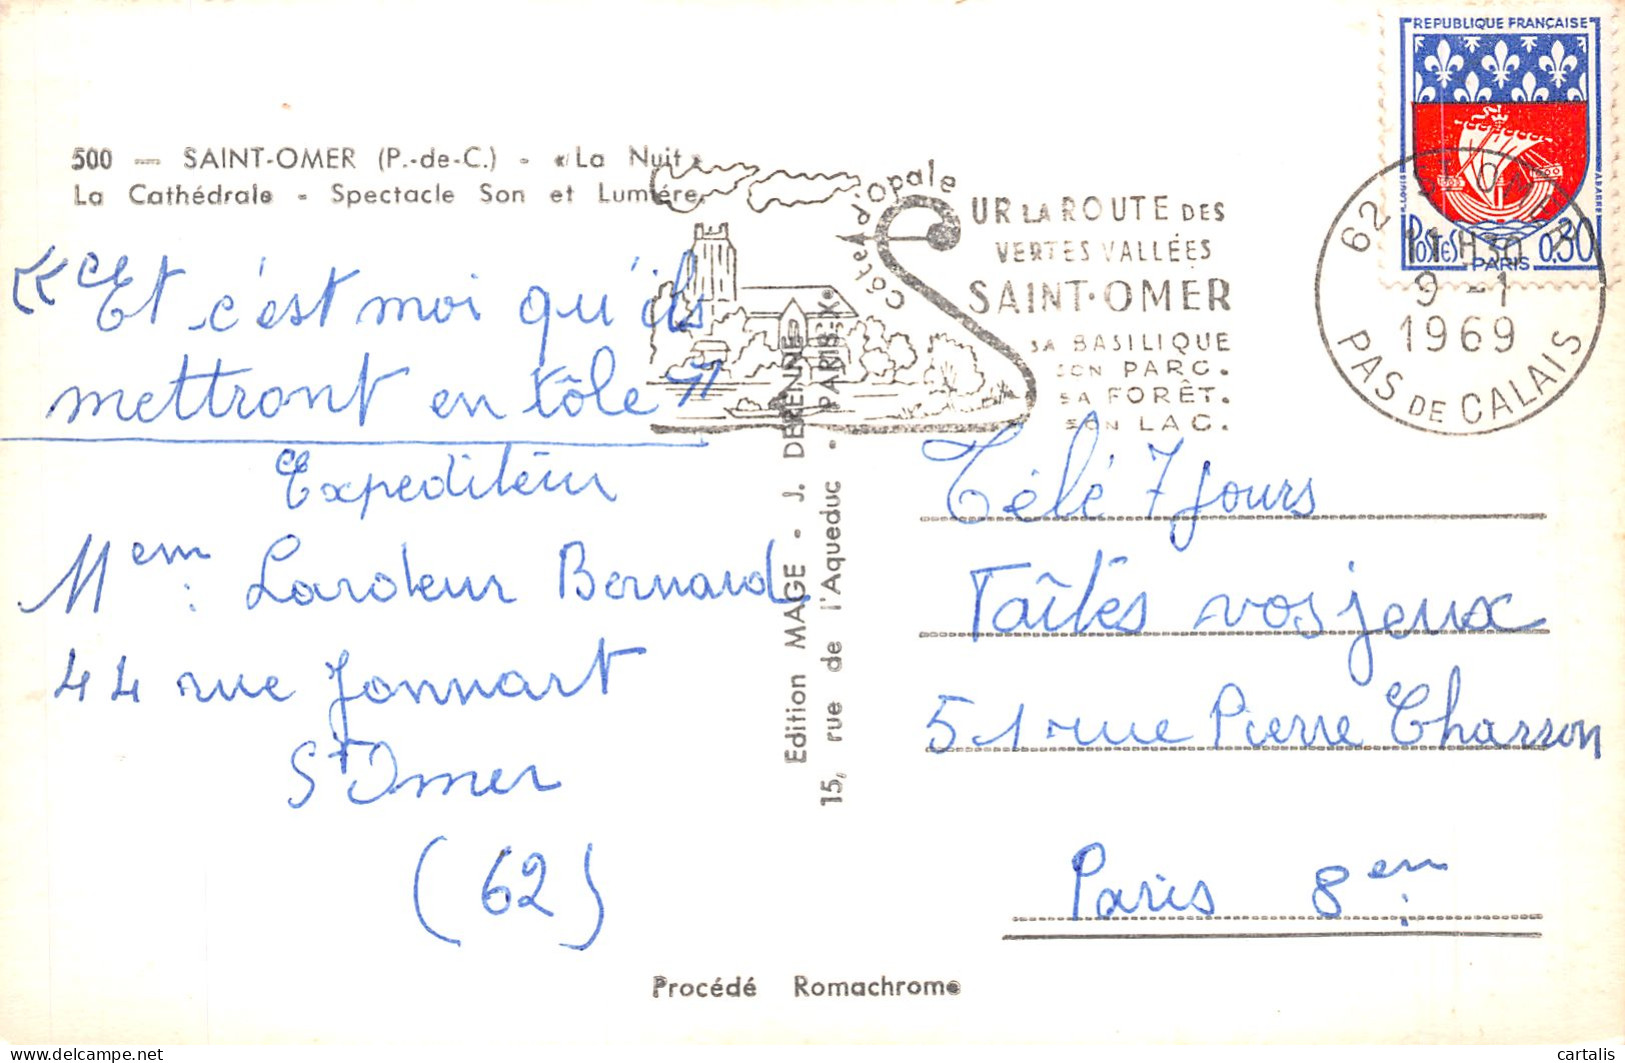 500 — SAINT-OMER (P.-de-C.) - « La Nuit »
La Cathédrale - Spectacle Son et Lumière.
« Et c'est moi qu'ils
mettront en tôle "
Expediteur
Mem : Laroleur Bernard
44 rue Jonnart
St Omer
(62)
Edition MAGE - J. DERENNE
15, rue de l'Aqueduc - PARIS X•
Procédé Romachrome
Côte d'Opale
SUR LA ROUTE DES
VERTES VALLÉES
SAINT-OMER
SA BASILIQUE
SON PARC.
SA FORÊT.
SON LAC.
REPUBLIQUE FRANÇAISE
POSTES 0,30
PARIS
62 ST OMER
11H30
9 -1
1969
PAS DE CALAIS
Télé 7 jours
Faîtes vos jeux
51 rue Pierre Charron
Paris 8em
cartalis